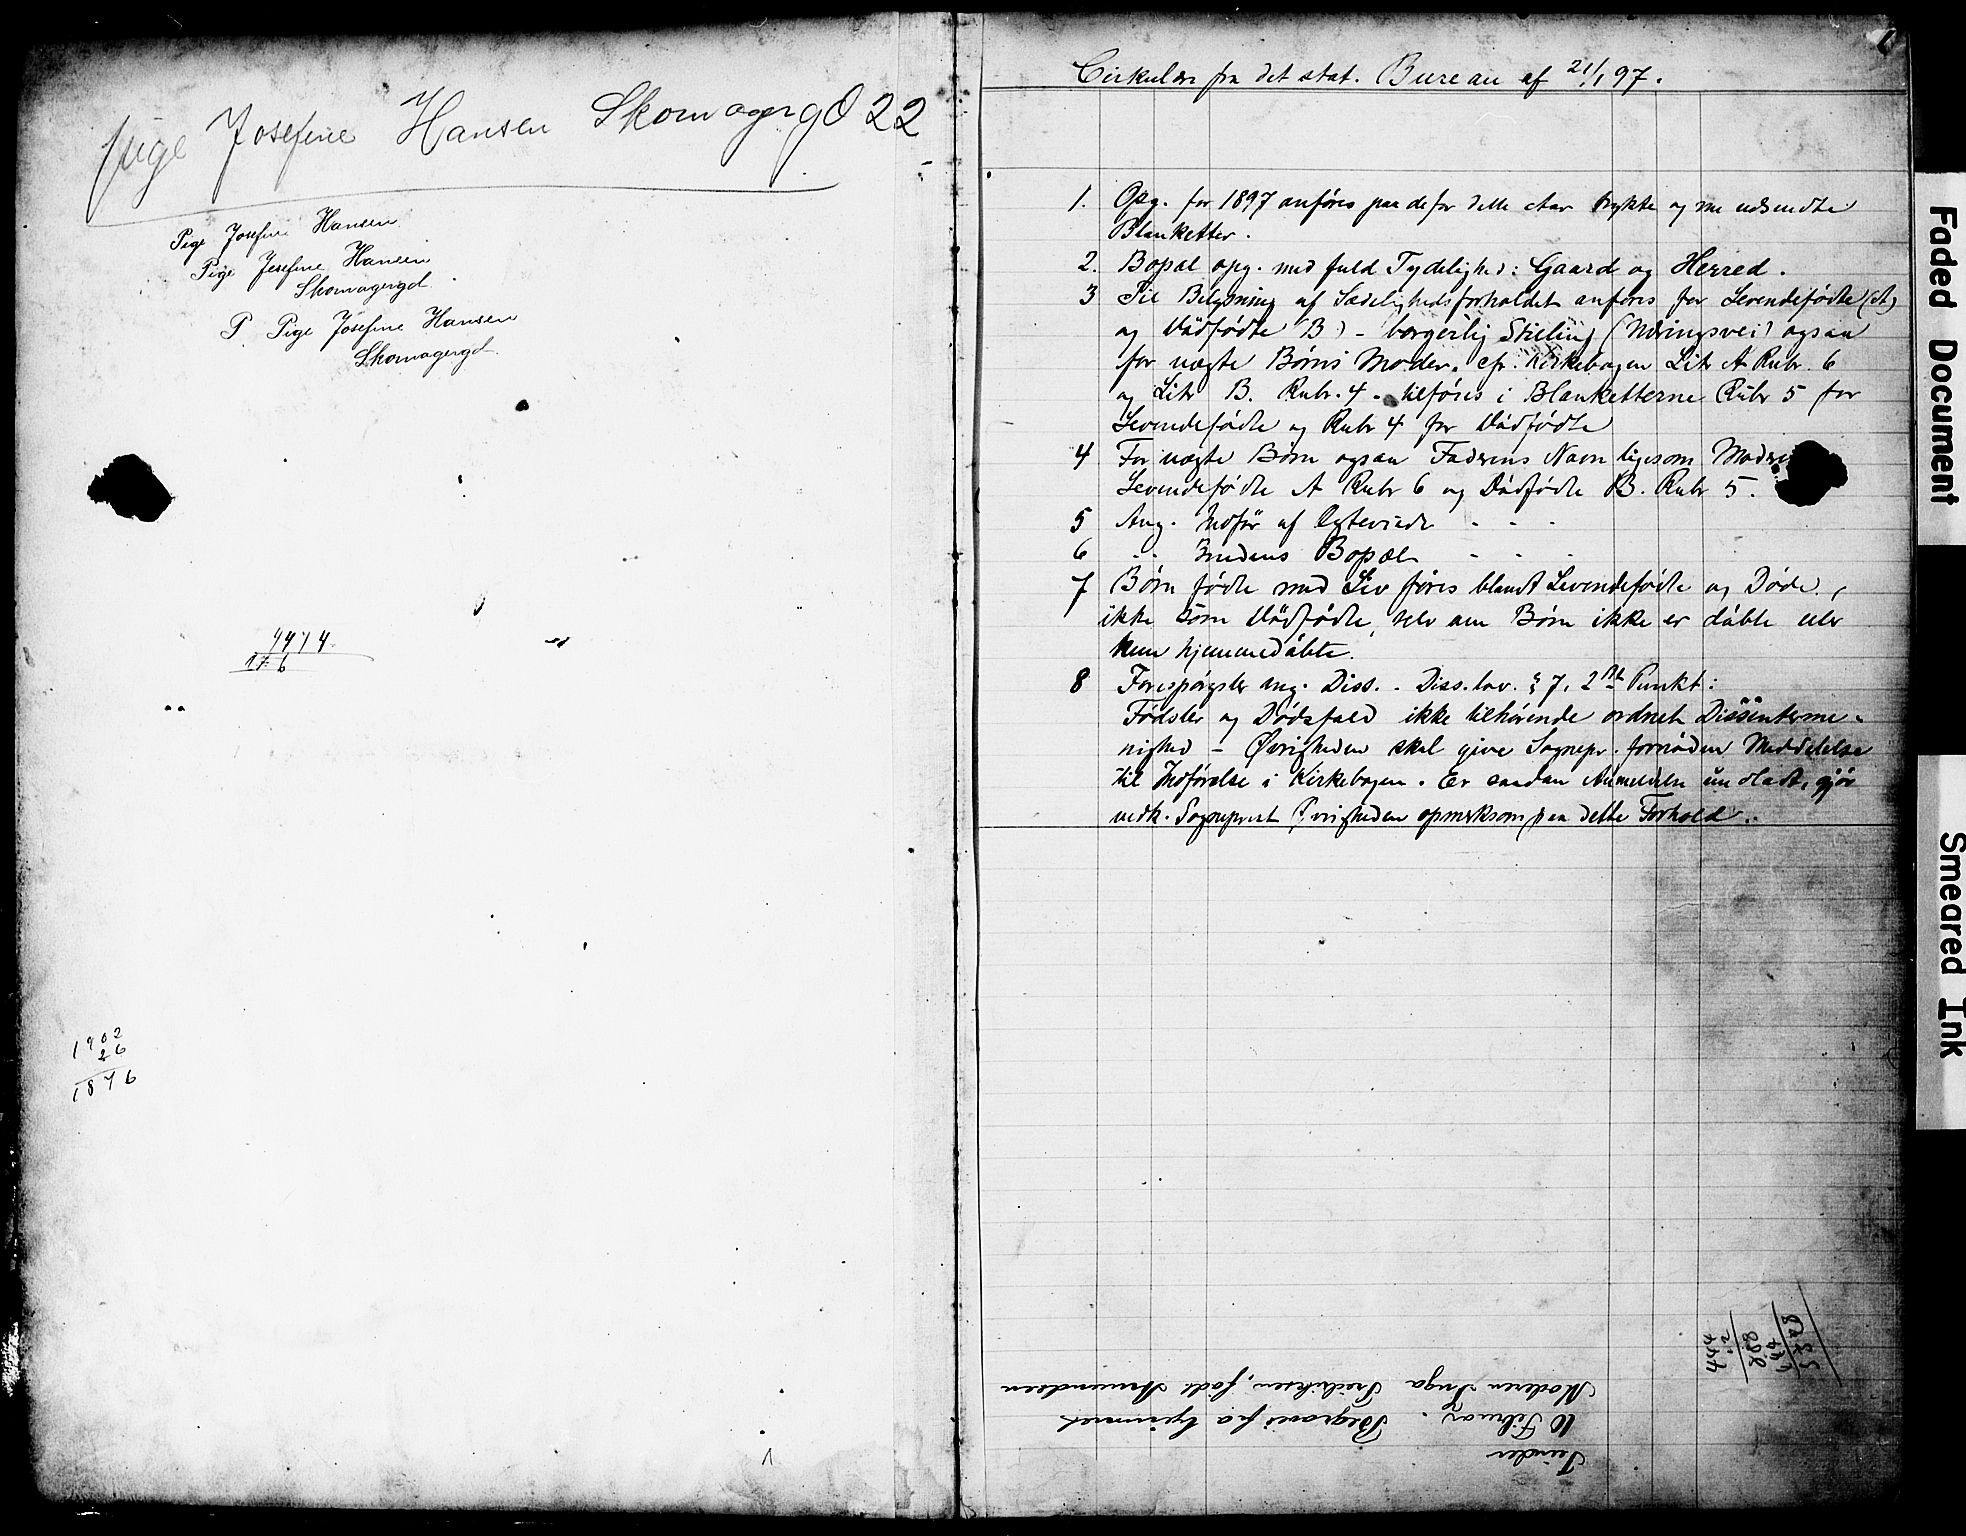 Pige Josefine Hansen Skomagergd 22
Pige Josefine Hansen
Pige Josefine Hansen
Skomagergd
P. Pige Josefine Hansen
Skomagergd.
1902
26
1876
Cirkulære fra det stat. Bureau af 21/1 97.
1. Opg. for 1897 anføres paa de for dette Aar trykte og nu udsendte
Blanketter.
2. Bopæl opg. med fuld Tydelighed: Gaard og Herred.
3 Til Belysning af Sædelighedsforholdet anføres for Levendefødte (A)
og Dødfødte (B) - borgerlig Stilling (Næringsvei) ogsaa
for uægte Børns Moder. cfr. Kirkebogen Litr A Rubr. 6
og Litr B. Rubr. 4 - tilføies i Blanketterne Rubr 5 for
Levendefødte og Rubr 4 for Dødfødte
4 For uægte Børn ogsaa Faderens Navn ligesom
Levendefødte A Rubr 6 og Dødfødte B. Rubr 5.
5 Ang. Indfør af Ægteviede - - -
6 - - Brudens Bopæl - - -
7 Børn fødte med Liv føres blandt Levendefødte og Døde,
ikke som Dødfødte, selv om Børn ikke er døbte eller
kun hjemmedøbte.
8 Forespørgsler ang. Diss. - Diss.lov. § 7, 2det Punkt:
Fødsler og Dødsfald ikke tilhørende ordnet Dissenterme-
nighed - Øvrigheden skal give Sognepr. fornøden Meddelelse
til Indførelse i Kirkebogen. Er saadan Anmeldelse undladt, gjør
vedk. Sogneprest Øvrigheden opmerksom paa dette Forhold.
Tvinder
10 Februar. Begravet fra hjemmet
Moderen Inga Fredriksen, født Amundsen